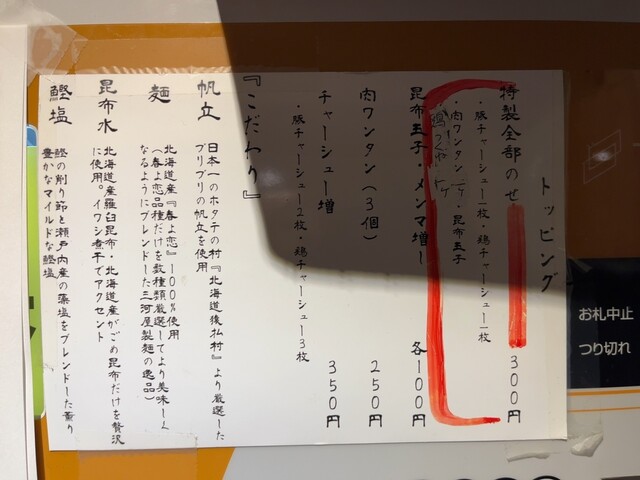 トッピング
特製全部のせ 300円
・豚チャーシュー一枚・鶏チャーシュー一枚
・肉ワンタン二ケ・昆布玉子
昆布玉子・メンマ増し 各100円
肉ワンタン(3個) 250円
チャーシュー増 350円
・豚チャーシュー2枚・鶏チャーシュー3枚
『こだわり』
帆立 日本一のホタテの村『北海道猿払村』より厳選した
プリプリの帆立を使用
麺 北海道産『春よ恋』100%使用
(春よ恋品種だけを数種類厳選してより美味しく
なるようにブレンドした三河屋製麺の逸品)
昆布水 北海道産羅臼昆布・北海道産がごめ昆布だけを贅沢
に使用。イワシ煮干でアクセント
鰹塩 鰹の削り節と瀬戸内産の藻塩をブレンドした薫り
豊かなマイルドな鰹塩
お札中止
つり切れ